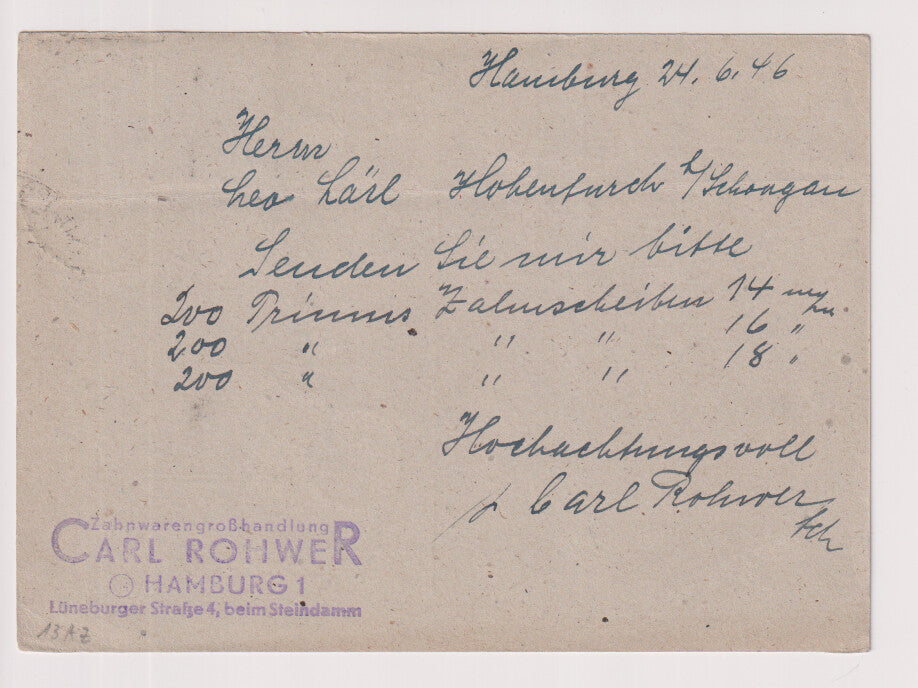 Hamburg 24. 6. 46
Herrn
Leo Läsl Hohenfurch b/Schongau
Senden Sie mir bitte
200 Primus Zahnscheiben 14 m/m
200 " " " 16 "
200 " " " 18 "
Hochachtungsvoll
Carl Rohwer
Zahnwarengroßhandlung
CARL ROHWER
HAMBURG 1
Lüneburger Straße 4, beim Steindamm
13 AZ